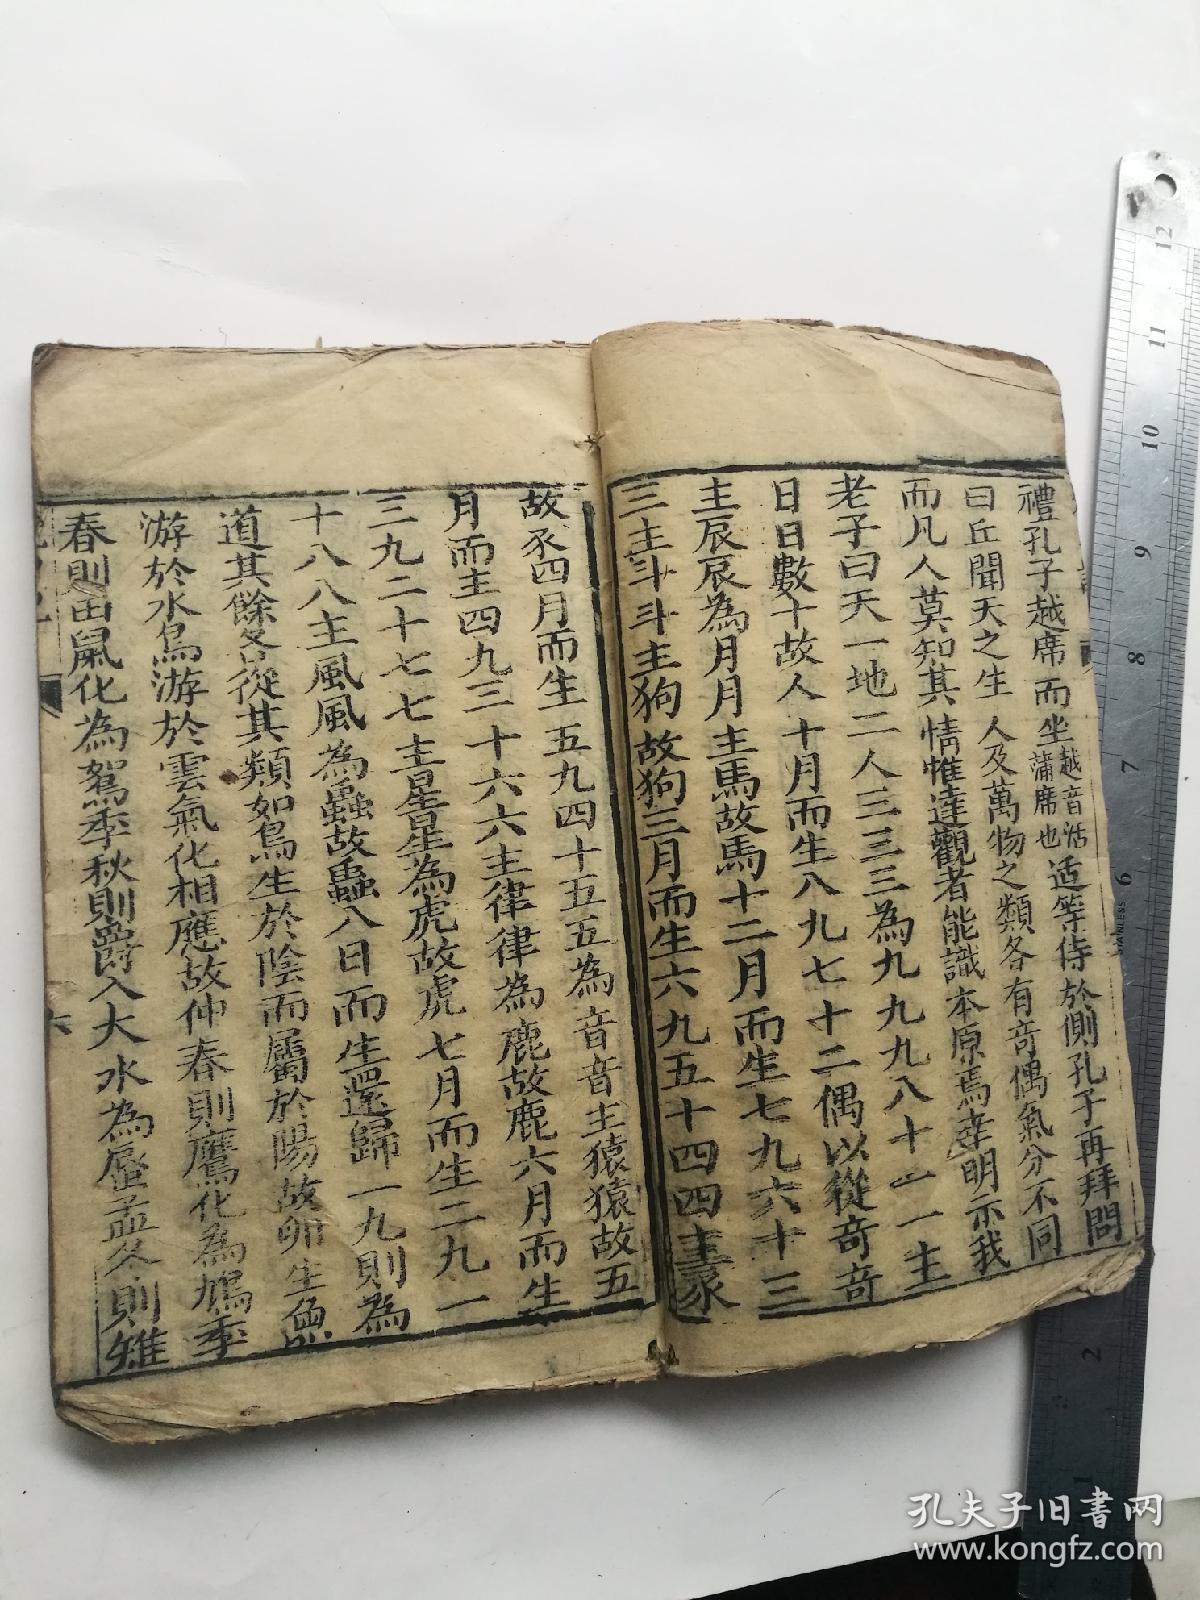 禮孔子越席而坐越音活蒲席也适等侍於側孔子再拜問
曰丘聞天之生人及萬物之類各有奇偶氣分不同
而凡人莫知其情惟達觀者能識本原焉幸明示我
老子曰天一地二人三三三為九九九八十一一主
日日數十故人十月而生八九七十二偶以從奇奇
主辰辰為月月主馬故馬十二月而生七九六十三
三主斗斗主狗故狗三月而生六九五十四四主豕
故豕四月而生五九四十五五為音音主猿猿故五
月而主四九三十六六主律律為鹿故鹿六月而生
三九二十七七主星星為虎故虎七月而生二九一
十八八主風風為蟲故蟲八日而生還歸一九則為
道其餘各從其類如鳥生於陰而屬於陽故卵生魚
游於水鳥游於雲氣化相應故仲春則鷹化為鳩季
春則田鼠化為鴽季秋則爵入大水為蜃孟冬則雉
六
12
11
10
9
8
7
6
2
1
孔夫子旧书网
www.kongfz.com